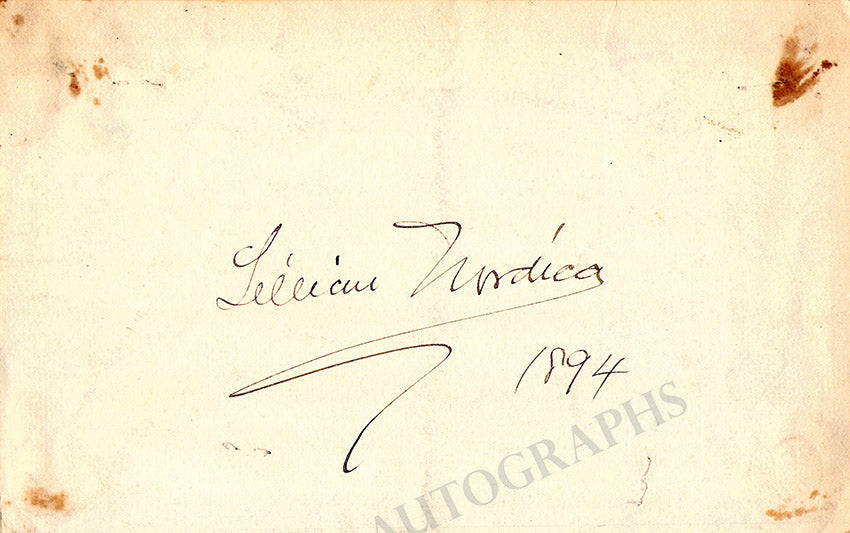 Lillian Nordica
1894
AUTOGRAPHS